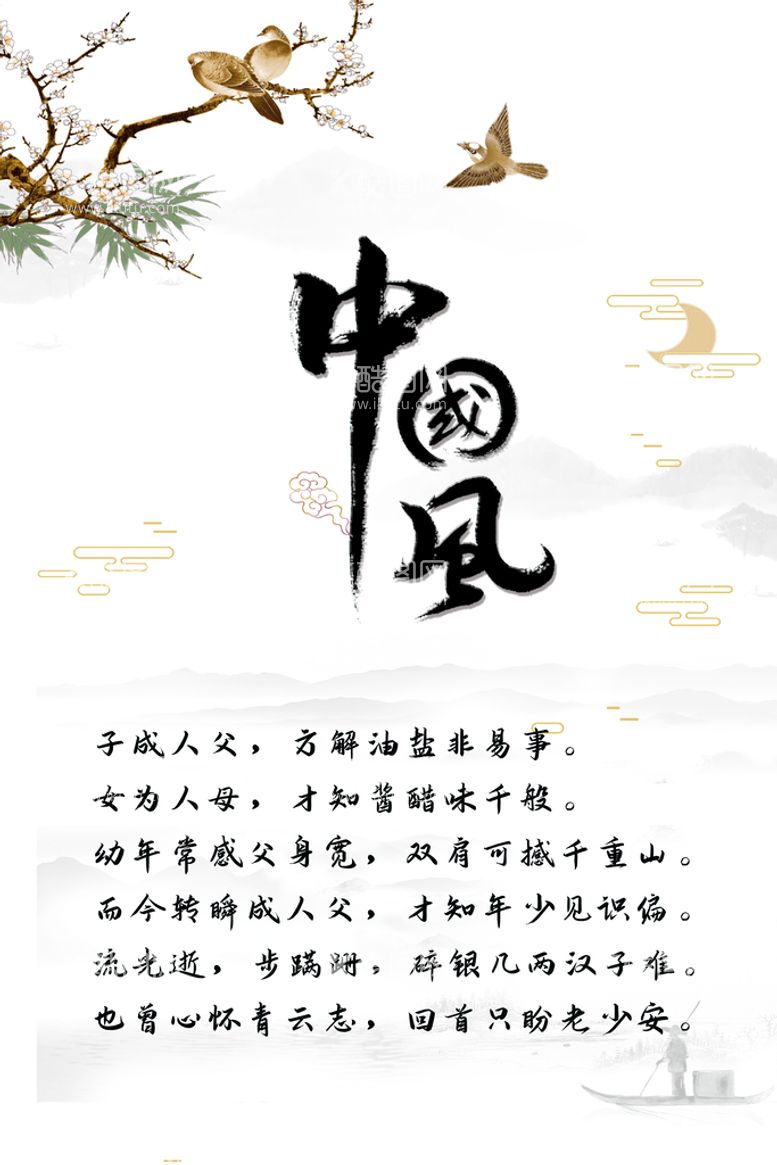 中國风
子成人父，方解油盐非易事。
女为人母，才知酱醋味千般。
幼年常感父身宽，双肩可撼千重山。
而今转瞬成人父，才知年少见识偏。
流光逝，步蹒跚。碎银几两汉子难。
也曾心怀青云志，回首只盼老少安。